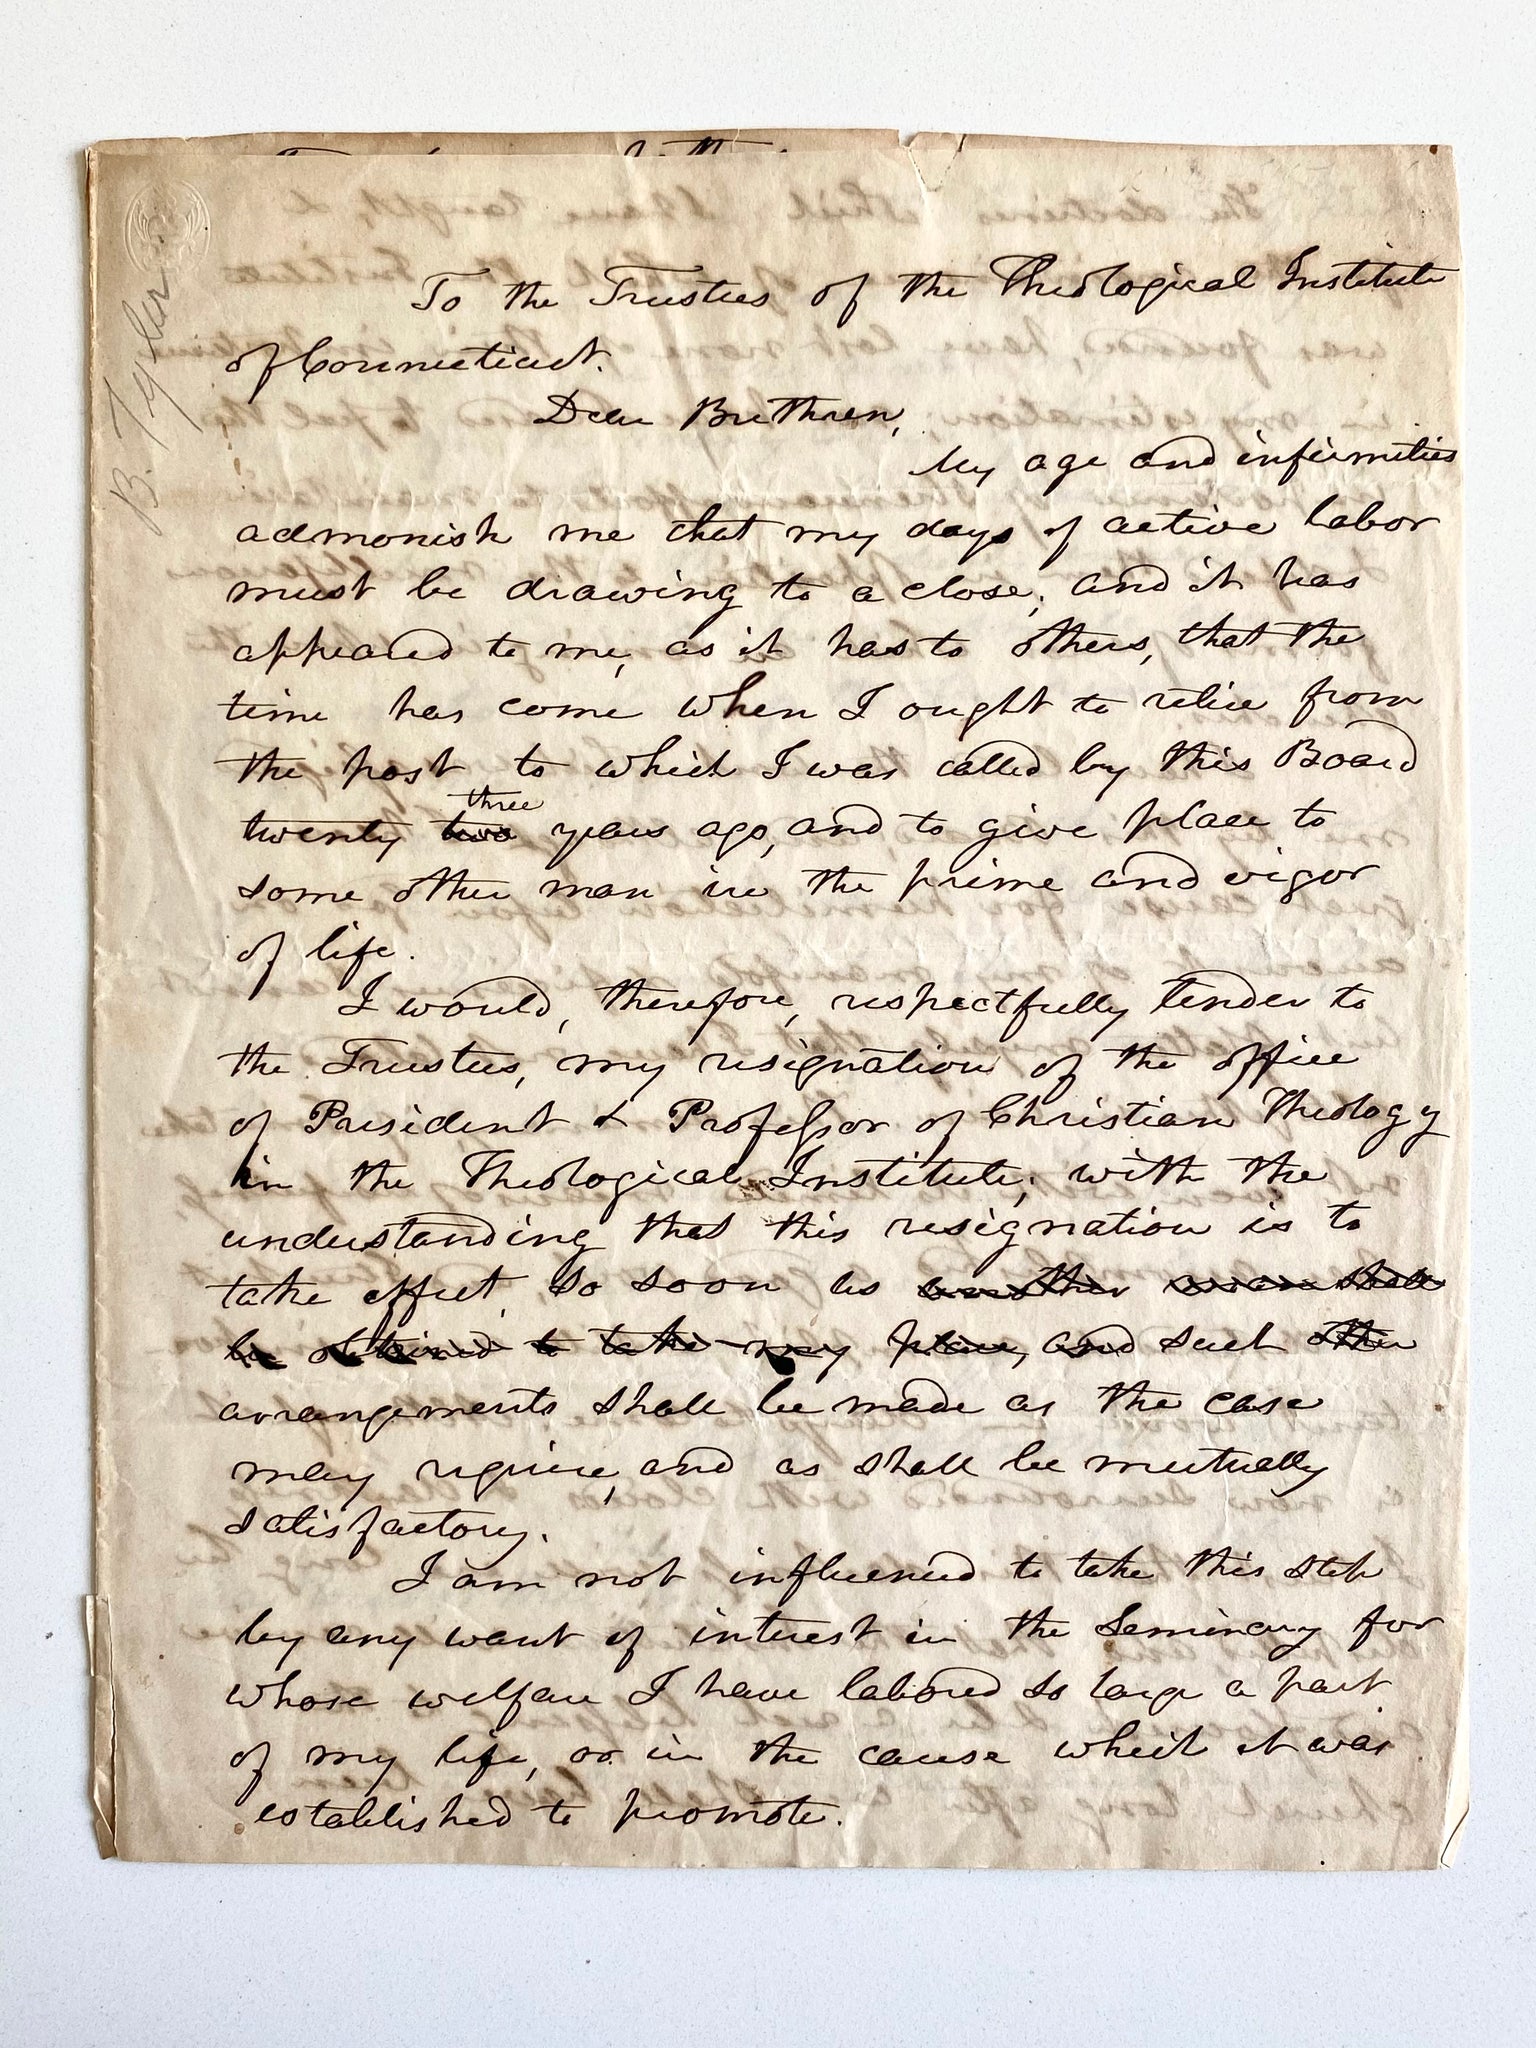 B. Tyler
To the Trustees of the Theological Institute
of Connecticut.
Dear Brethren,
My age and infirmities
admonish me that my days of active labor
must be drawing to a close; and it has
appeared to me, as it has to others, that the
time has come when I ought to retire from
the post to which I was called by this Board
three
twenty two years ago, and to give place to
some other man in the prime and vigor
of life.
I would, therefore, respectfully tender to
the Trustees, my resignation of the office
of President & Professor of Christian Theology
in the Theological Institute; with the
understanding that this resignation is to
take effect, so soon as another man shall
be obtained to take my place, and such other
arrangements shall be made as the case
may require, and as shall be mutually
satisfactory.
I am not influenced to take this step
by any want of interest in the Seminary for
whose welfare I have labored so large a part
of my life, or in the cause which it was
established to promote.